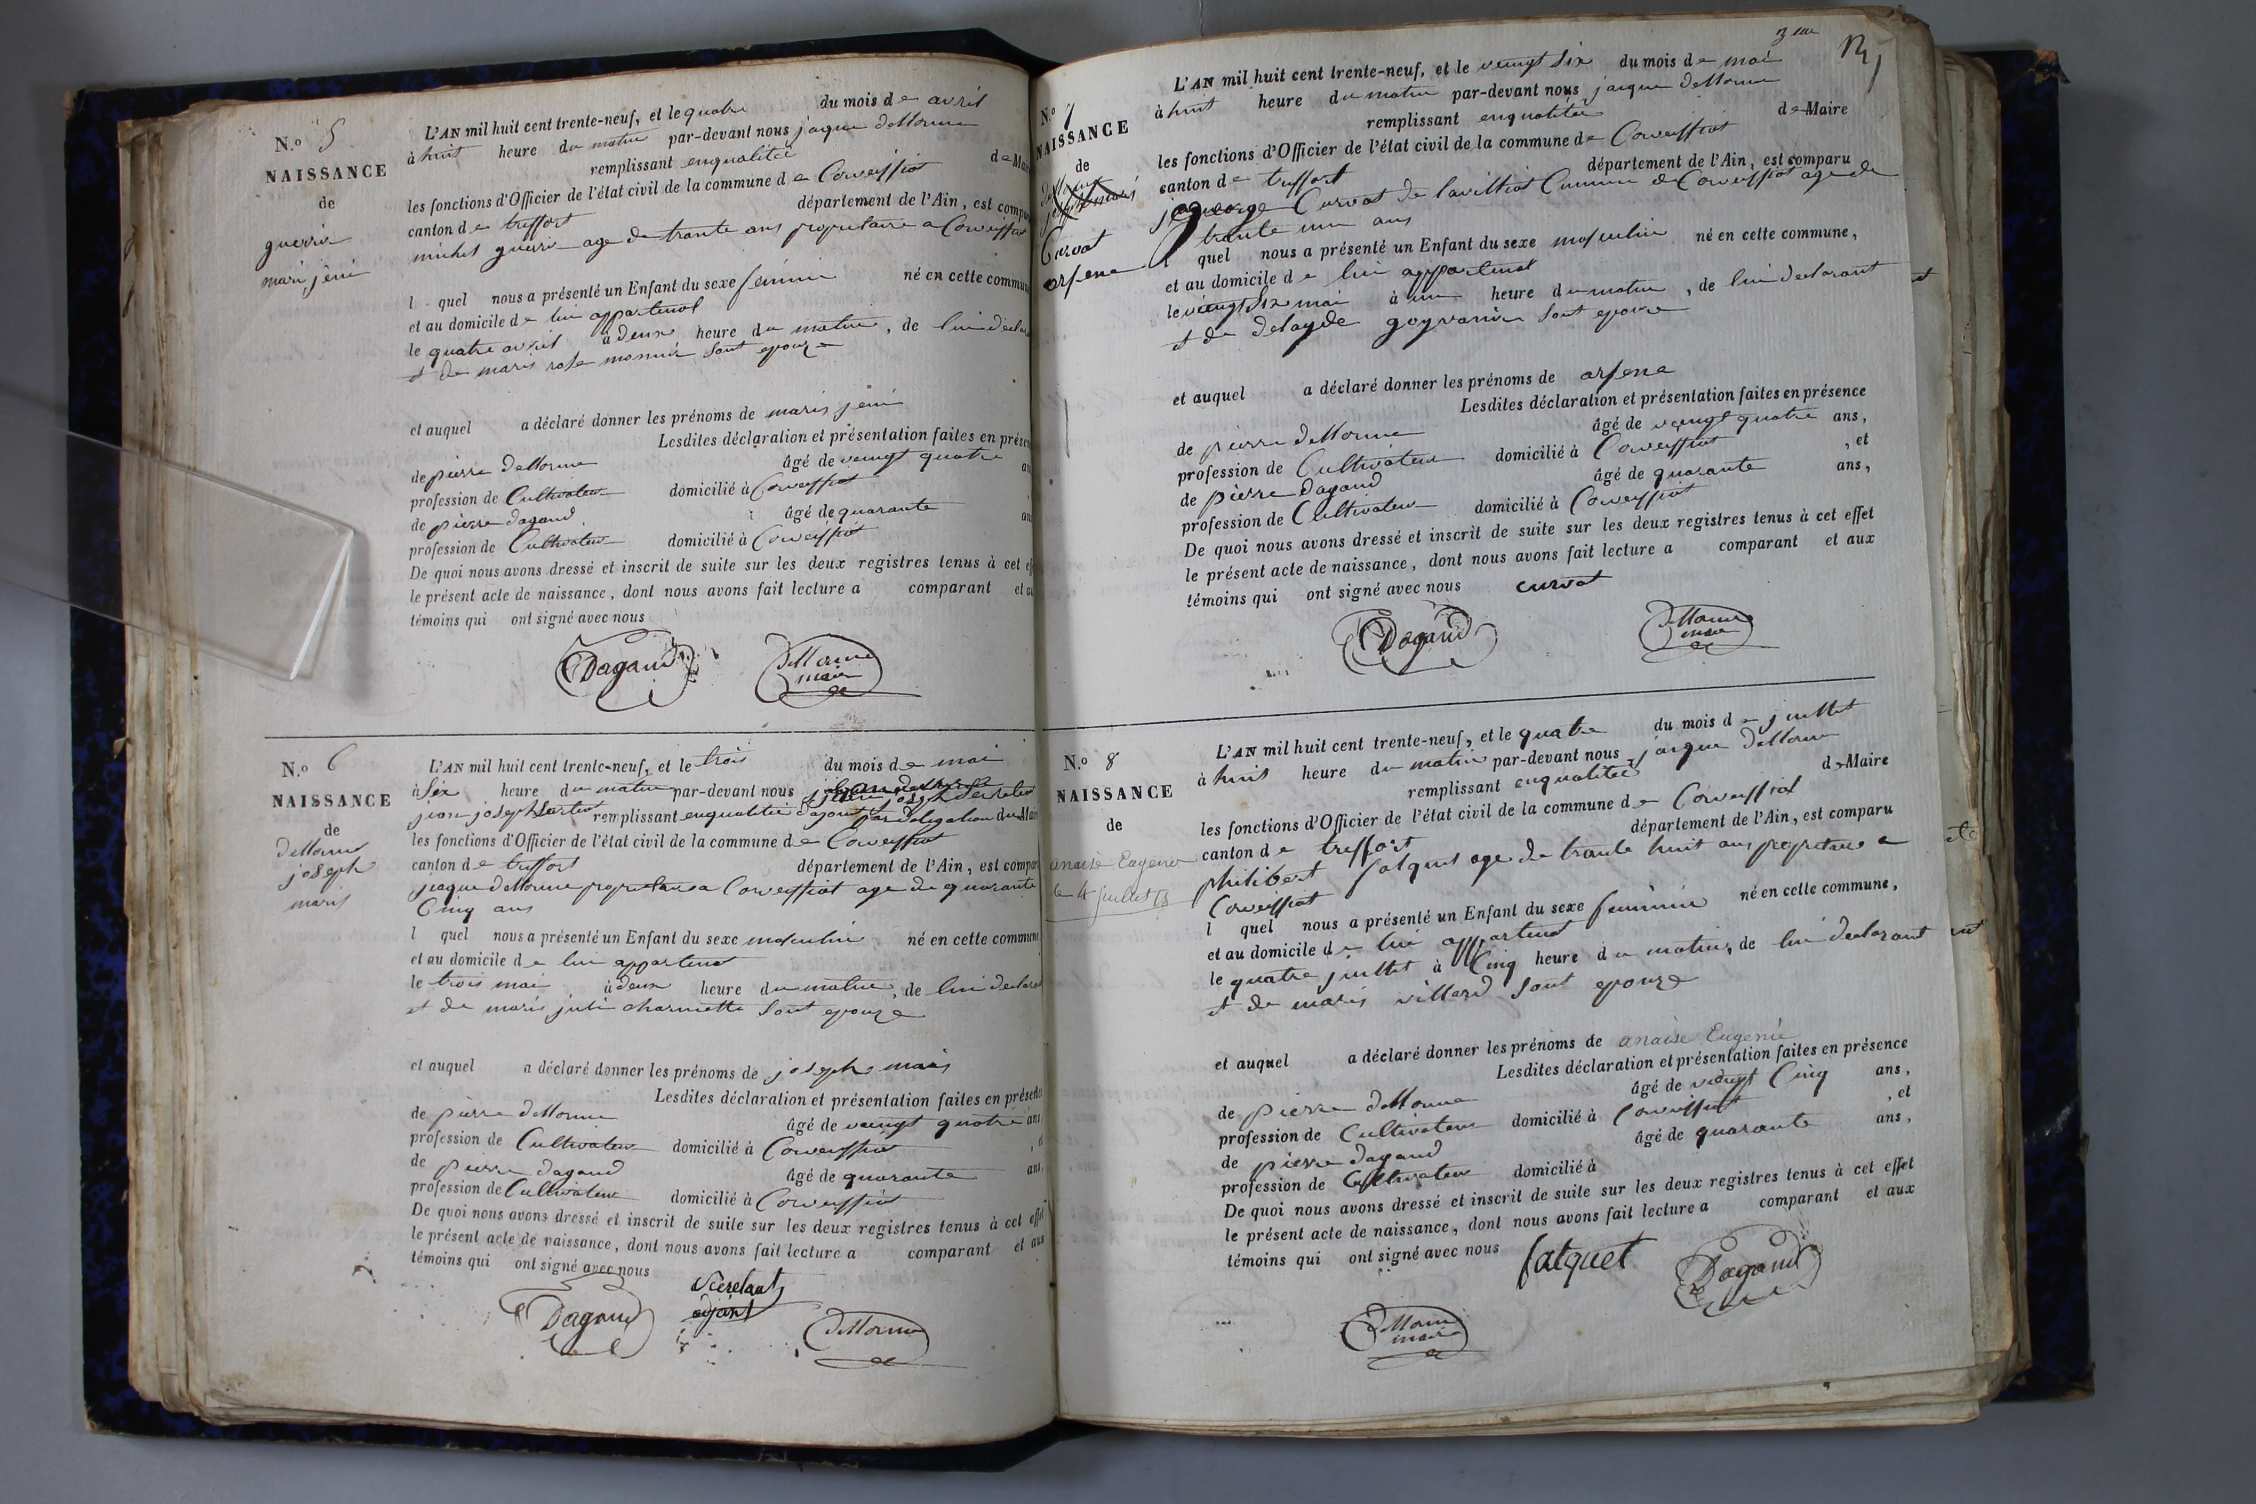 N.o 5
NAISSANCE
de
guerrin
marie jeni
L'AN mil huit cent trente-neuf, et le quatre du mois de avril
à huit heure du matin par-devant nous jaque dellorme
remplissant enqualitée de Mai
les fonctions d'Officier de l'état civil de la commune de Corveissiat
canton de treffort département de l'Ain, est compa
michel guerrin age de trante ans propriétaire a Corveissiat
l quel nous a présenté un Enfant du sexe féminin né en cette commun
et au domicile de lui appartenat
le quatre avril à deux heure du matin, de lui declara
et de marie rose monnié sont epouze
et auquel a déclaré donner les prénoms de marie jeni
Lesdites déclaration et présentation faites en présen
de pierre dellorme âgé de veingt quatre an
profession de Cultivateur domicilié à Corveissiat
de pierre dagand âgé de quarante an
profession de Cultivateur domicilié à Corveissiat
De quoi nous avons dressé et inscrit de suite sur les deux registres tenus à cet eff
le présent acte de naissance, dont nous avons fait lecture a comparant et au
témoins qui ont signé avec nous
Dagand dellorme
maire
N.o 6
NAISSANCE
de
dellorme
joseph
marie
L'AN mil huit cent trente-neuf, et le trois du mois de mai
à six heure du matin par-devant nous
jean joseph remplissant enqualitée d'ajoint par delegation du Mair
les fonctions d'Officier de l'état civil de la commune de Corveissiat
canton de treffort département de l'Ain, est compar
jaque dellorme propriétaire a Corveissiat age de quarante
Cinq ans
l quel nous a présenté un Enfant du sexe masculin né en cette commune
et au domicile de lui appartenat
le trois mai à deux heure du matin, de lui declarat
et de marie juli charnette sont epouze
et auquel a déclaré donner les prénoms de joseph marie
Lesdites déclaration et présentation faites en présence
de pierre dellorme âgé de veingt quatre ans
profession de Cultivateur domicilié à Corveissiat
de pierre dagand âgé de quarante ans,
profession de Cultivateur domicilié à Corveissiat
De quoi nous avons dressé et inscrit de suite sur les deux registres tenus à cet effet
le présent acte de naissance, dont nous avons fait lecture a comparant et aux
témoins qui ont signé avec nous
Dagand adjoint dellorme
N.o 7
NAISSANCE
de
Curvat
arsene
L'AN mil huit cent trente-neuf, et le veingt six du mois de mai
à huit heure du matin par-devant nous jaque dellorme
remplissant enqualitée de Maire
les fonctions d'Officier de l'état civil de la commune de Corveissiat
canton de treffort département de l'Ain, est comparu
george Curvat de lavilliat Commune de Corveissiat age de
trante un ans
l quel nous a présenté un Enfant du sexe masculin né en cette commune,
et au domicile de lui appartenat
le veingt six mai à un heure du matin, de lui declarant et
et de delayde goyvanin sont epouze
et auquel a déclaré donner les prénoms de arsene
Lesdites déclaration et présentation faites en présence
de pierre dellorme âgé de veingt quatre ans,
profession de Cultivateur domicilié à Corveissiat, et
de pierre dagand âgé de quarante ans,
profession de Cultivateur domicilié à Corveissiat
De quoi nous avons dressé et inscrit de suite sur les deux registres tenus à cet effet
le présent acte de naissance, dont nous avons fait lecture a comparant et aux
témoins qui ont signé avec nous curvat
Dagand dellorme
maire
N.o 8
NAISSANCE
de
anaise Eugenie
le 4 juillet
L'AN mil huit cent trente-neuf, et le quatre du mois de juillet
à huit heure du matin par-devant nous jaque dellorme
remplissant enqualitée de Maire
les fonctions d'Officier de l'état civil de la commune de Corveissiat
canton de treffort département de l'Ain, est comparu
philibert falquet age de trante huit ans propriétaire a
Corveissiat
l quel nous a présenté un Enfant du sexe feminin né en cette commune,
et au domicile de lui appartenat
le quatre juillet à Cinq heure du matin, de lui declarant et
et de marie villard sont epouze
et auquel a déclaré donner les prénoms de anaise Eugenie
Lesdites déclaration et présentation faites en présence
de pierre dellorme âgé de veingt Cinq ans,
profession de Cultivateur domicilié à Corveissiat, et
de pierre dagand âgé de quarante ans,
profession de Cultivateur domicilié à
De quoi nous avons dressé et inscrit de suite sur les deux registres tenus à cet effet
le présent acte de naissance, dont nous avons fait lecture a comparant et aux
témoins qui ont signé avec nous falquet Dagand
dellorme
maire